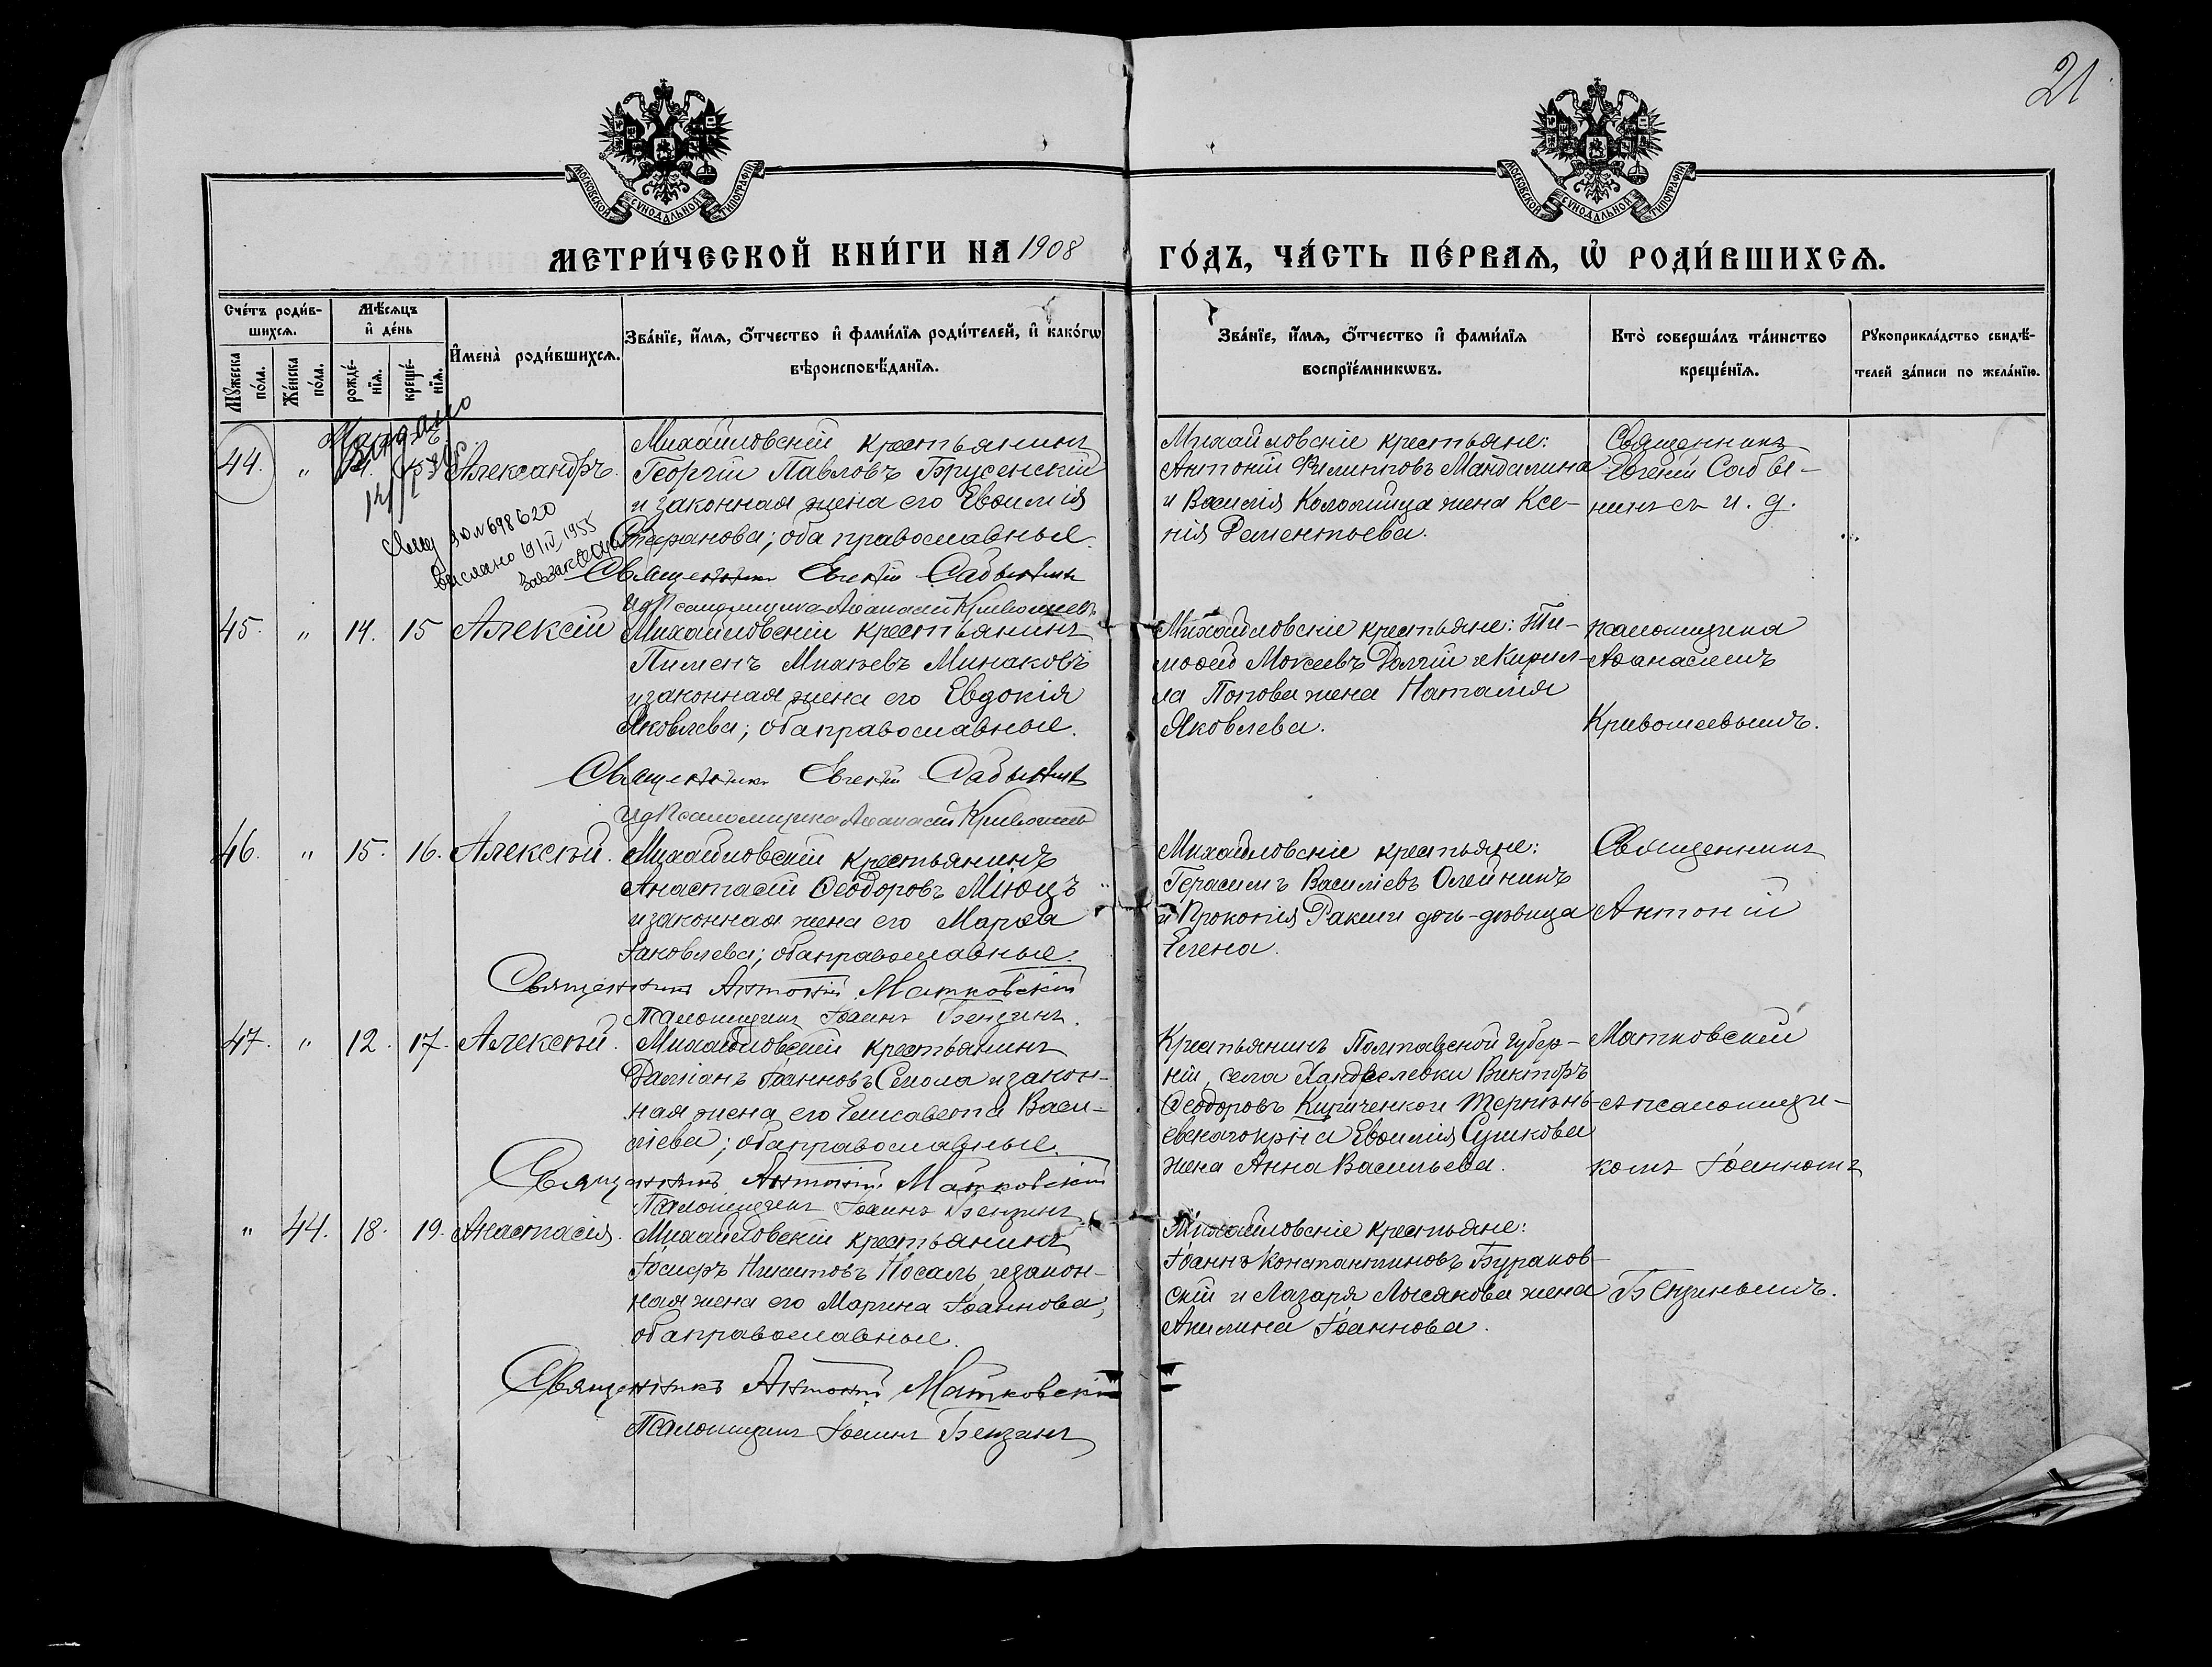 21
МОСКОВСКОЙ СѴНОДАЛЬНОЙ ТИПОГРАФІИ
МОСКОВСКОЙ СѴНОДАЛЬНОЙ ТИПОГРАФІИ
МЕТРИ́ЧЕСКОЙ КНИ́ГИ НА 1908
ГО́ДЪ, ЧА́СТЬ ПЕ́РВАѦ, Ѡ҆ РОДИ́ВШИХСѦ.
Сче́тъ роди́в-
шихсѧ.
Мꙋжеска по́ла.
Же́нска по́ла.
Мѣ́сѧцъ
и҆ де́нь
рожде́-
нїѧ.
креще́-
нїѧ.
И҆мена̀ роди́вшихсѧ.
Зва́нїе, и҆́мѧ, ѻ҆́тчество и҆ фами́лїѧ роди́телей, и҆ како́гѡ
вѣроисповѣ́данїѧ.
Зва́нїе, и҆́мѧ, ѻ҆́тчество и҆ фами́лїѧ
воспрїе́мникѡвъ.
Кто̀ соверша́лъ та́инство
креще́нїѧ.
Рꙋкоприкла́дство свидѣ́-
телей за́писи по жела́нїю.
44. " Александръ.
Михайловскій крестьянинъ
Георгій Павловъ Брусенскій
и законная жена его Евѳимія
оба православные.
ЮЛ 698620
выслано 19/IV, 1955
Священникъ Евгеній Сабынинъ
Ид Псаломщика Аѳанасій Кривошеевъ
Михайловскіе крестьяне:
Антоній Филиповъ Мандалина
и Василія Коломійца жена Ксе-
нія Дементьева.
Священникъ
Евгеній Сабы-
нинъ съ и. д.
45. " 14. 15 Алексій
Михайловскій крестьянинъ
Пименъ Михѣевъ Минаковъ
и законная жена его Евдокія
Яковлева; оба православные.
Священникъ Евгеній Сабынинъ
Ид Псаломщика Аѳанасій Кривошеевъ
Михайловскіе крестьяне: Ти-
моѳей Мокеевъ Долгій и Кирил-
ла Попова жена Наталія
Яковлева.
псаломщика
Аѳанасіемъ
Кривошеевымъ.
46. " 15. 16. Алексѣй.
Михайловскій крестьянинъ
Анастасій Ѳеодоровъ Міюцъ
и законная жена его Марѳа
Іаковлева; оба православные.
Священникъ Антоній Матковскій
Псаломщикъ Іоаннъ Бензинъ.
Михайловскіе крестьяне:
Герасимъ Василіевъ Олейникъ
и Прокопія Ракши дочь-дѣвица
Елена.
Священникъ
Антоній
47. " 12. 17. Алексѣй.
Михайловскій крестьянинъ
Даміанъ Іоанновъ Сѣмола и закон-
ная жена его Елисавета Васи-
ліева; оба православные.
Священникъ Антоній Матковскій
Псаломщикъ Іоаннъ Бензинъ
Крестьянинъ Полтавской губер-
ніи, села Викторъ
Ѳеодоровъ Кириченко и
Евѳимія Сушкова
жена Анна Васильева.
Матковскій
съ псаломщи-
комъ Іоанномъ
" 44. 18. 19. Анастасія.
Михайловскій крестьянинъ
Іосифъ Никитовъ Носаль, и закон-
ная жена его Марина Іоаннова,
оба православные.
Священникъ Антоній Матковскій
Псаломщикъ Іоаннъ Бензинъ
Михайловскіе крестьяне:
Іоаннъ Константиновъ Бураков-
скій и Лазаря Лысякова жена
Акилина Іоаннова.
Бензинымъ.